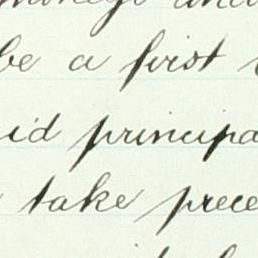 be a first
principa
take prece